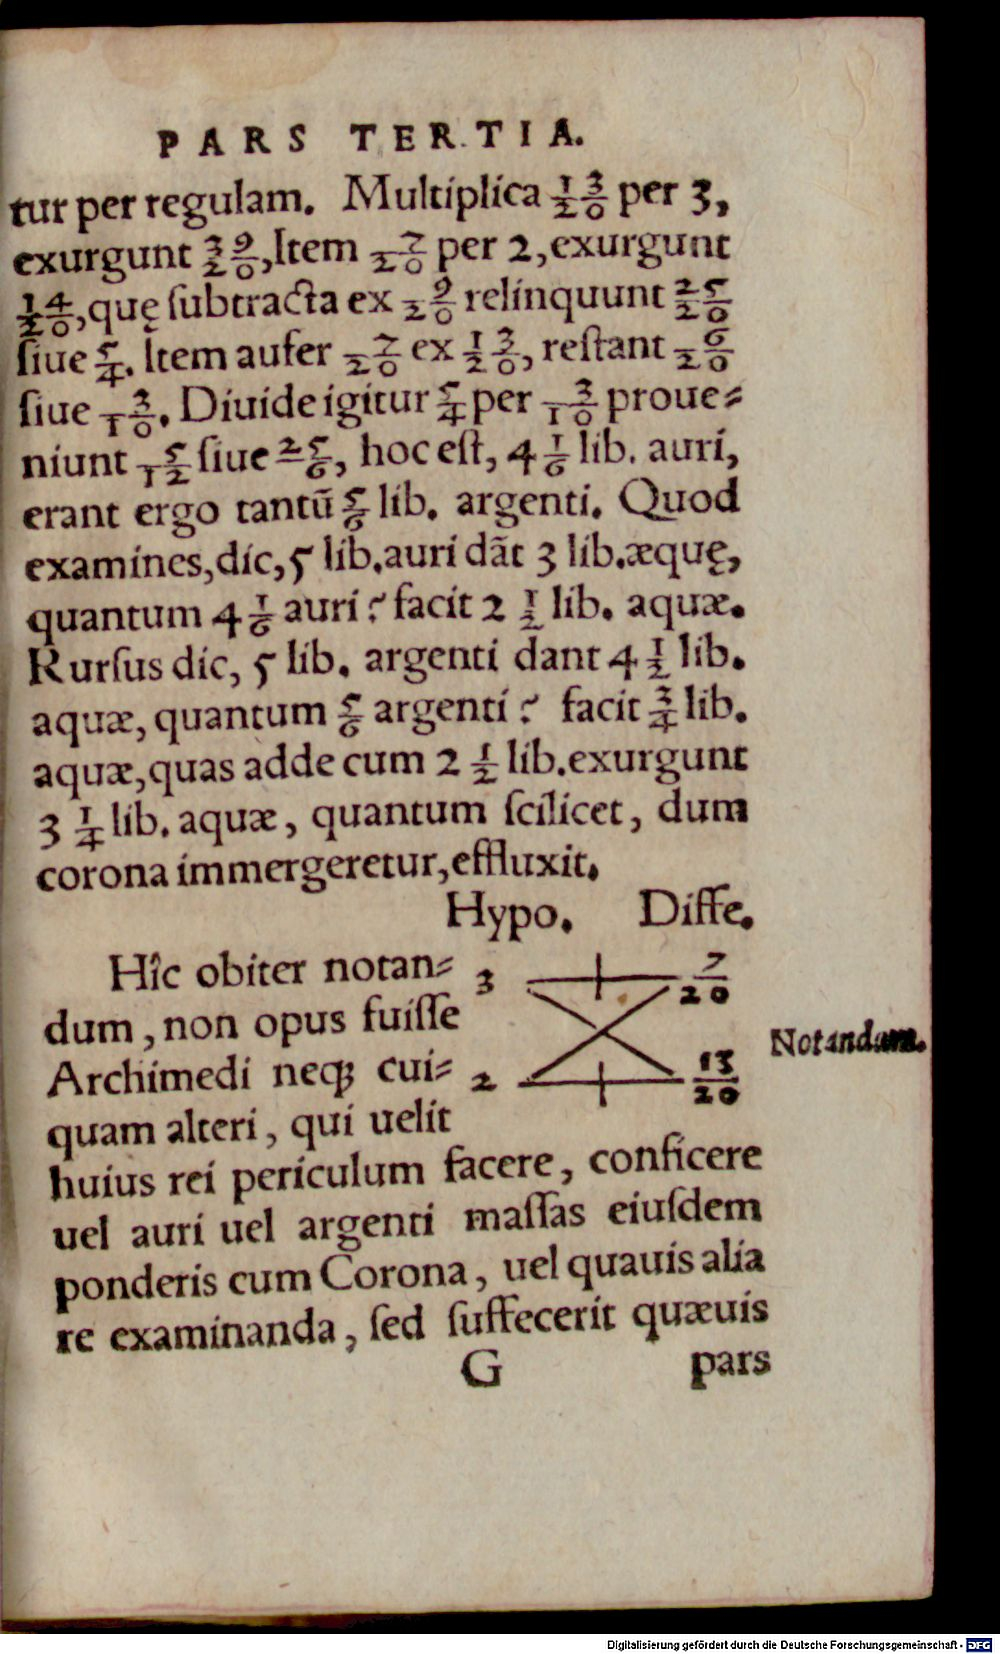 PARS TERTIA.
tur per regulam. Multiplica 13/20 per 3,
exurgunt 39/20, Item 7/20 per 2, exurgunt
14/20, quę ſubtracta ex 39/20 relinquunt 25/20
ſiue 5/4. Item aufer 7/20 ex 13/20, reſtant 6/20
ſiue 3/10. Diuide igitur 5/4 per 3/10 proue⸗
niunt 25/6 ſiue 25/6, hoc eſt, 4 1/6 lib. auri,
erant ergo tantũ 5/6 lib. argenti. Quod
examines, dic, 5 lib. auri dãt 3 lib. æquę,
quantum 4 1/6 auri? facit 2 1/2 lib. aquæ.
Rurſus dic, 5 lib. argenti dant 4 1/2 lib.
aquæ, quantum 5/6 argenti? facit 3/4 lib.
aquæ, quas adde cum 2 1/2 lib. exurgunt
3 1/4 lib. aquæ, quantum ſcilicet, dum
corona immergeretur, effluxit.
Hypo. Diffe.
Hîc obiter notan⸗ 3 7/20
dum, non opus fuiſſe
Archimedi neqꝫ cui⸗ 2 13/20
quam alteri, qui uelit
Notandum.
huius rei periculum facere, conficere
uel auri uel argenti maſſas eiuſdem
ponderis cum Corona, uel quauis alia
re examinanda, ſed ſuffecerit quæuis
G pars
Digitalisierung gefördert durch die Deutsche Forschungsgemeinschaft - DFG